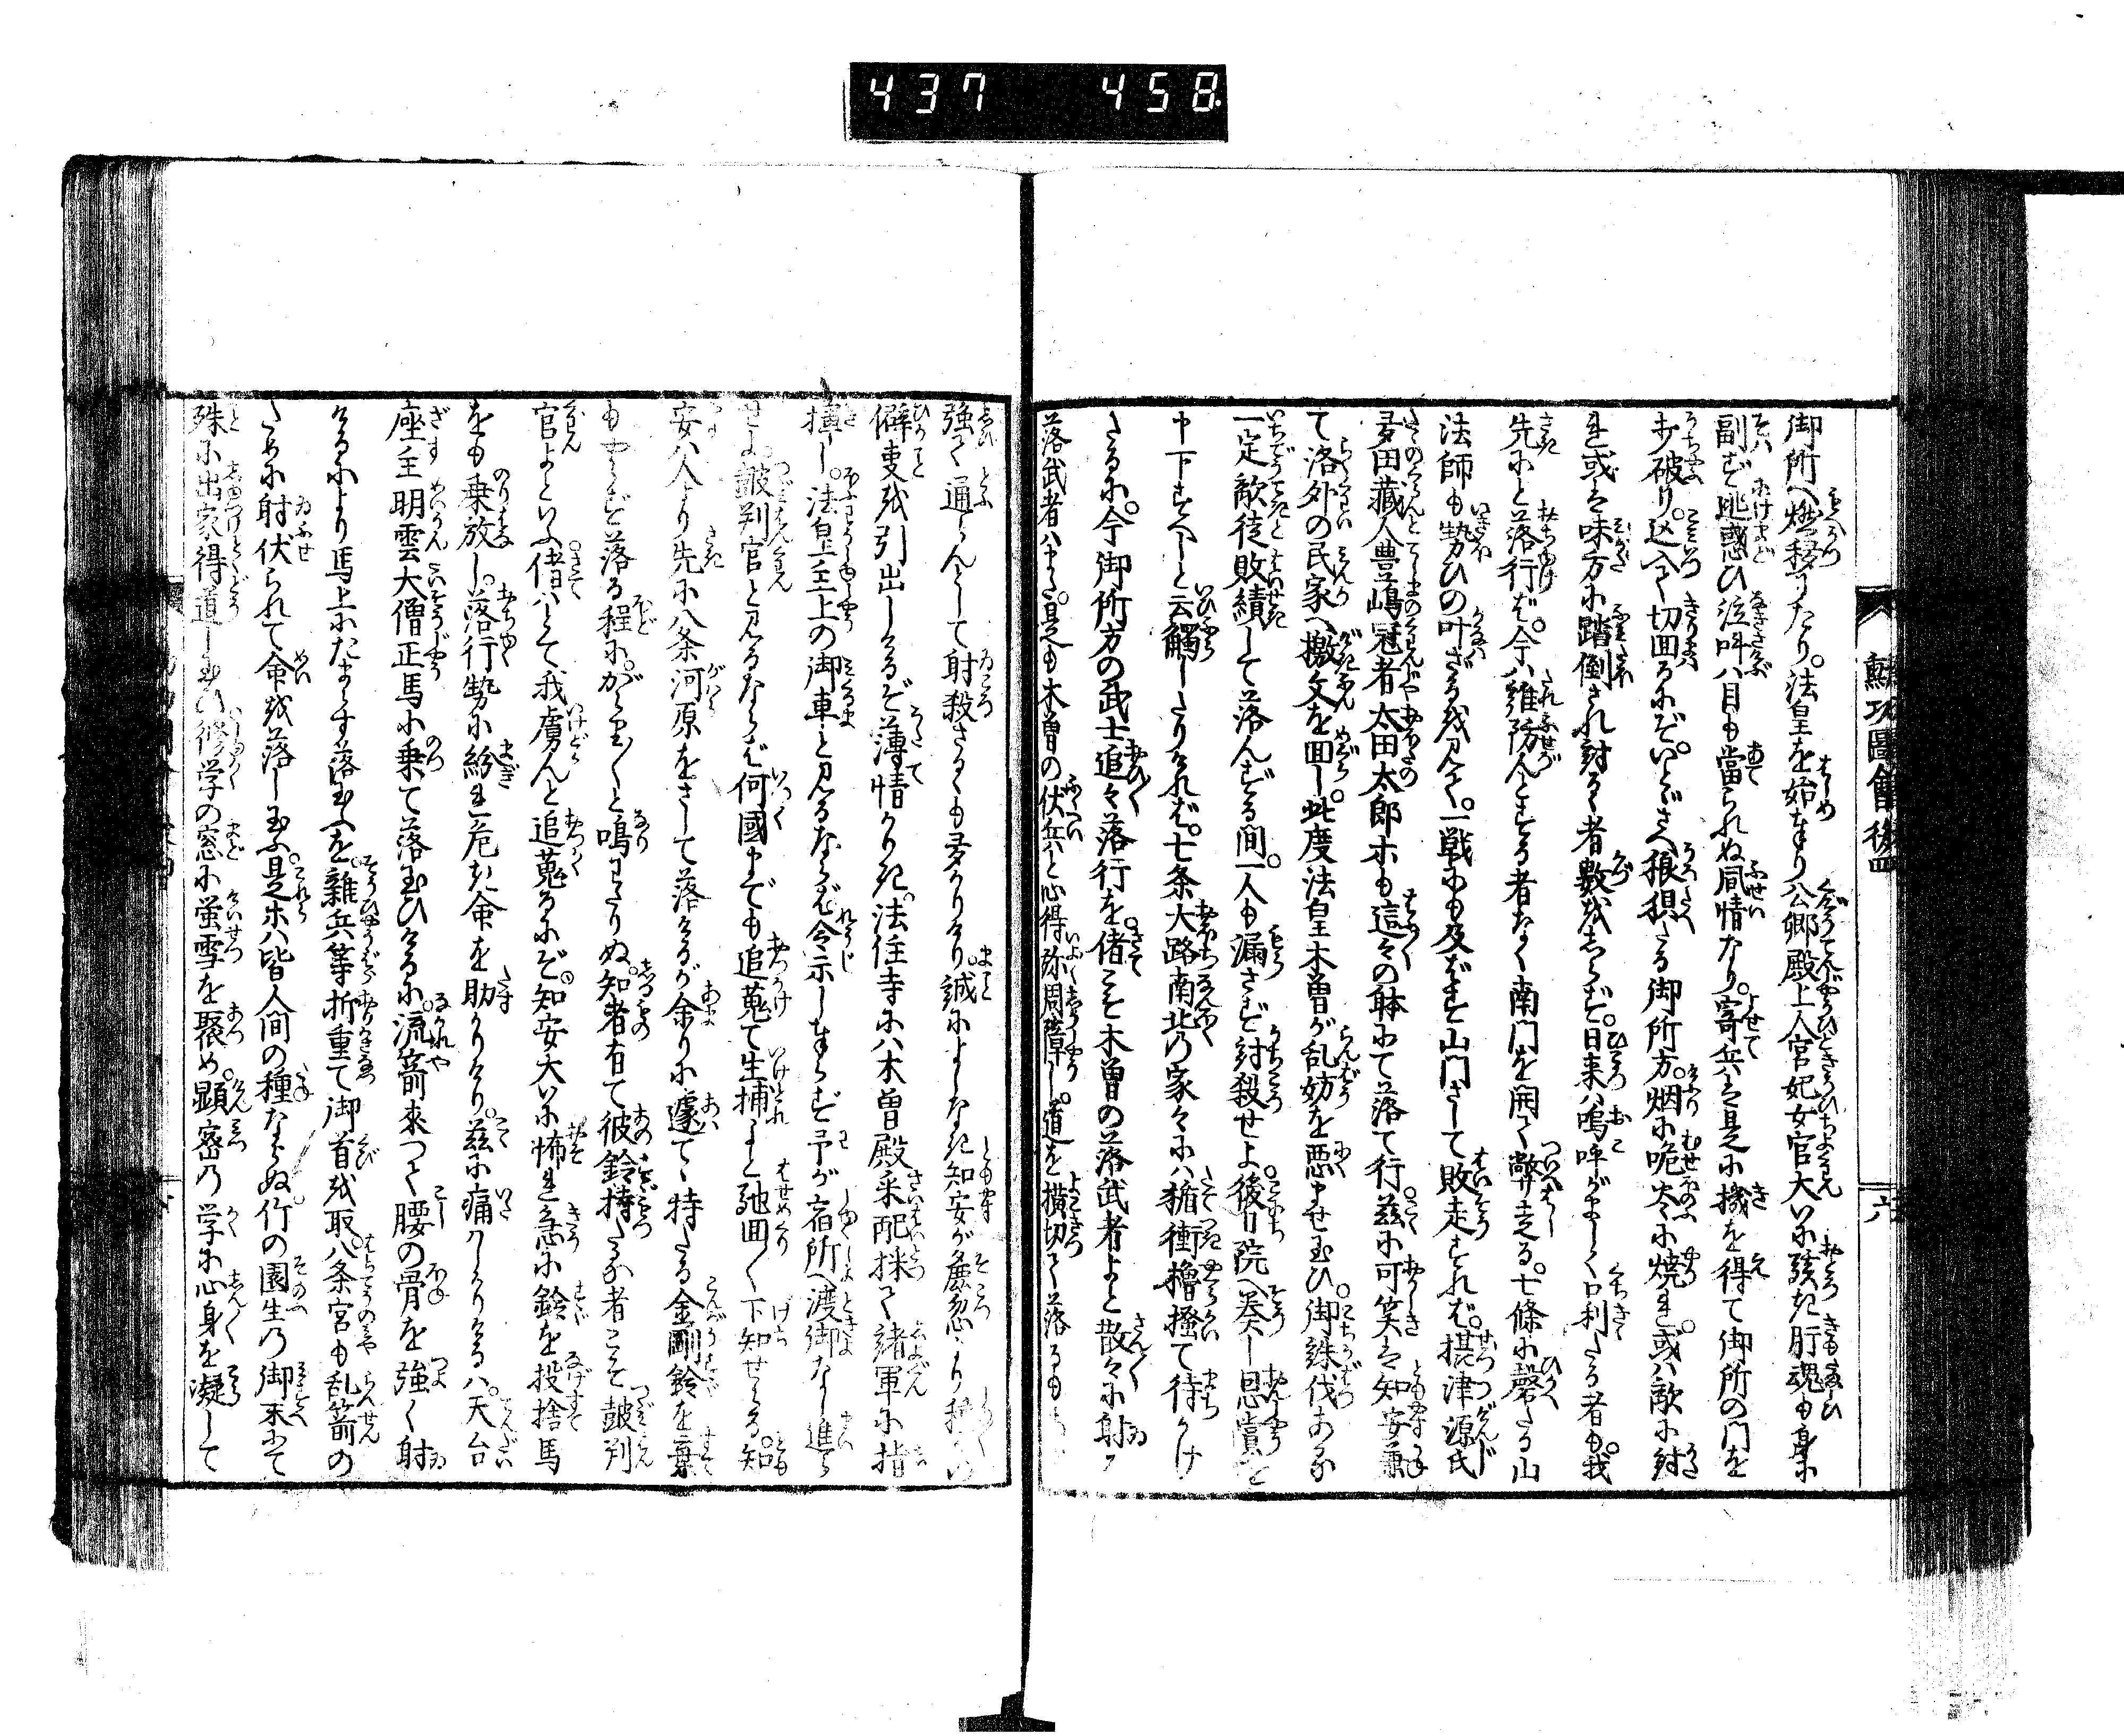 437 458
御所へ燃移りたり。法皇を始奉り公卿殿上人官妃女官大いに駭き肝魂も身に
副ず逃惑ひ泣叫ハ目も當られぬ風情なり。寄兵ハ是に機を得て御所の門を
打破り。込入て切囬るにぞ。いとゞさへ狼狽たる御所方。烟に咽炎に焼れ。或ハ敵に討
れ或ハ味方に踏倒され討るゝ者數をしらず。日来ハ嗚呼がましく口利たる者も。我
先にと落行ば。今ハ誰防んとする者なく南門を開て敝走る。七條に磬たる山
法師も勢ひの叶ざるを見て。一戦にも及ばず山門さして敗走すれば。摂津源氏
多田藏人豊嶋冠者太田太郎ホも這々の躰にて落て行。茲に可笑ハ知安兼
て洛外の民家へ檄文を囬し。此度法皇木曽が乱妨を悪ませ玉ひ。御誅伐あるに
一定敵徒敗績して落んずる間。一人も漏さず討殺せよ。後日院へ奏し恩賞を
申下すべしと云觸したりければ。七条大路南北の家々にハ楯衝櫓搔て待かけ
たるに。今御所方の武士追々落行を。偖こそ木曽の落武者よと散々に射
落武者ハまた是も木曽の伏兵と心得弥周障し。道を横切て落るも
鯨功圖會後四
六
強て通らんとして射殺さるゝも多かりけり。誠によしなき知安が麁忽より
僻事を引出しけるぞ薄情かりき。法住寺にハ木曽殿采配採て緒軍に指
揮し。法皇主上の御車と見るならば令示し奉らず予が宿所へ渡御なし進ら
せよ。皷判官と見るならば何國までも追蒐て生捕れと馳囬〳〵下知せらる。知
安ハ人より先に八条河原をさして落けるが余りに遽て持たる金剛鈴を棄
もやらず落る程に。がら〳〵と鳴わたりぬ。知者有て彼鈴持たる者こそ皷判
官よといふ。偖ハとて我虜んと追蒐るにぞ。知安大いに怖れ急に鈴を投捨馬
をも乗放し。落行勢に紛れ危き命を助かりけり。茲に痛ハしかりけるハ。天台
座主明雲大僧正馬に乗て落玉ひけるに。流箭来つて腰の骨を強く射
けるにより馬上にたまらず落玉へを。雜兵等折重て御首を取。八条宮も乱箭の
ために射伏られて命を落し玉ふ。是ホハ皆人間の種ならぬ。竹の園生の御末にて
殊に出家得道し玉ひ修学の窓に蛍雪を聚め。顕密の学に心身を凝して